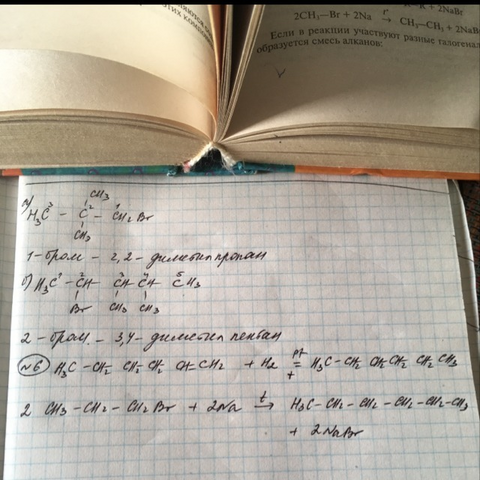 этих компонен
R + 2NaBr
2CH₃—Br + 2Na → CH₃—CH₃ + 2NaB
Если в реакции участвуют разные галогенал
образуется смесь алканов:
а)
CH₃
H₃C³ — C² — C¹H₂Br
CH₃
1-бром — 2,2-диметилпропан
б) H₃C¹ — C²H C³H C⁴H C⁵H₃
Br CH₃ CH₃
2-бром — 3,4-диметил пентан
№6 H₃C—CH₂ CH₂ CH₂ CH=CH₂ + H₂ = H₃C—CH₂ CH₂CH₂ CH₂ CH₃
2 CH₃—CH₂—CH₂Br + 2Na →t H₃C—CH₂—CH₂—CH₂—CH₂—CH₃
+ 2NaBr